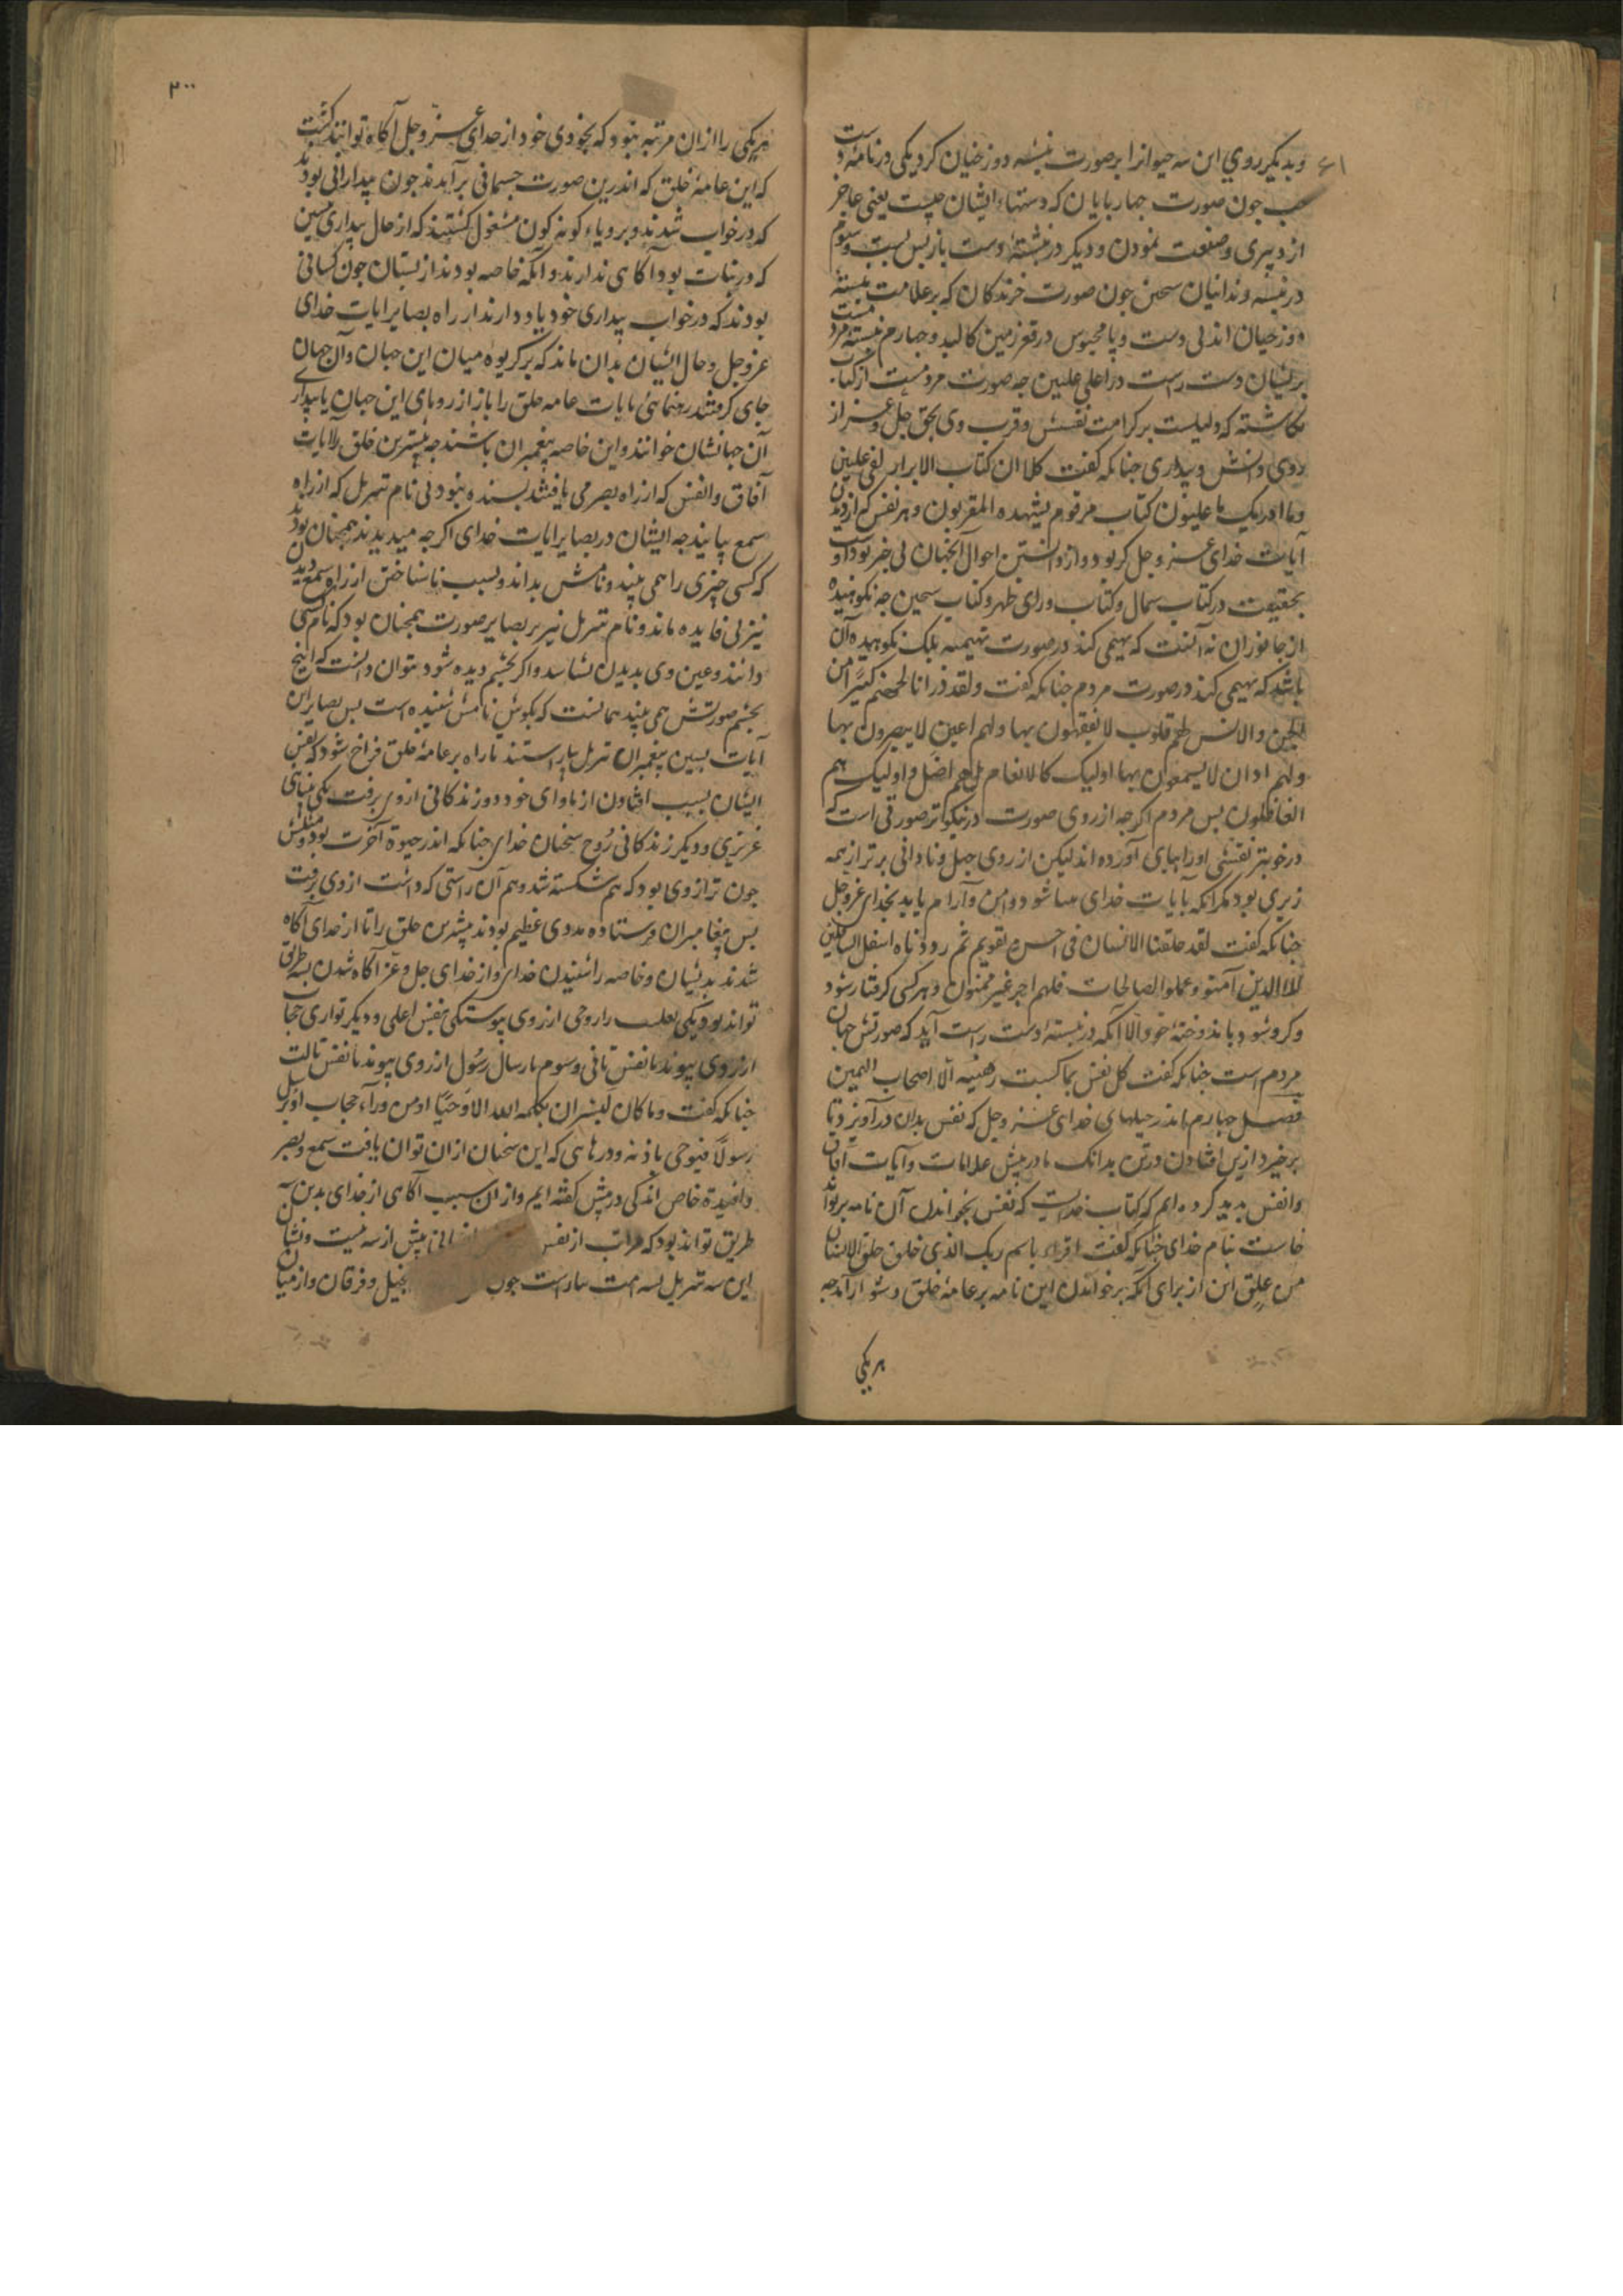 وبدیکر روی این سه حیوانرا بر صورت نبشته دوزخیان کرد یکی در نامهٔ دست
چب جون صورت جهاربایان که دستهاء ایشان جبست یعنی عاجز
از دبیری وصنعت نمودن ودیکر در نبشتهٔ دست باز بس بست وسوم
در نبشه وندانیان سجین جون صورت خزندکان که بر علامت نبشتهٔ
دوزخیان اند بی دست وپا محبوس در قعر زمین کالبد وجهارم نبشتهٔ مردم
بر نشان دست راست در اعلی علیین جه صورت مردمست از کتاب
نکاشته که دلیلست بر کرامت نفسش وقرب وی بحق جل وعز از
روی دانش وبیداری جنانکه کفت کلا ان کتاب الابرار لفی علیین
وما ادریک ما علیون کتاب مرقوم یشهده المقربون وهر نفس که از دید
آیات خدای عز وجل کر بود واز دانستن احوال آنجهان بی خبر بود او
بحقیقت در کتاب شمال وکتاب ورای ظهر وکتاب سجین جه نکوهیده
از جانوران نه آنست که بهیمی کند در صورت بهیمیه بلک نکوهیده آن
باشد که بهیمی کند در صورت مردم جنانکه کفت ولقد ذرانا لجهنم کثیرا من
الجن والانس لهم قلوب لا یفقهون بها ولهم اعین لا یبصرون بها
ولهم اذان لا یسمعون بها اولیک کالانعام بل هم اضل واولیک هم
الغافلون بس مردم اکرجه از روی صورت در نیکوتر صورتی است که
در خوبتر نقشی اورا بجای آورده اند لیکن از روی جهل ونادانی برتر از همه
زیری بود مکر آنکه بآیات خدای بینا شود وامن وآرام یابد بخدای عز وجل
جنانکه کفت لقد خلقنا الانسان فی احسن تقویم ثم رددناه اسفل السافلین
الا الذین آمنو وعملوا الصالحات فلهم اجر غیر ممنون وهر کسی کرفتار شود
وکرو شود باندوختهٔ خود الا آنکه در نبشتهٔ دست راست آید که صورتش جهان
مردم است جنانکه کفت کل نفس بما کسبت رهینه الا اصحاب الیمین
فصل جهارم اندر حیلهای خدای عز وجل که نفس بدان در آویزد تا
برخیزد از بس افتادن در تن بدانک ما در پیش علامات وآیات آفاق
وانفس بدید کرده ایم که کتاب خدایست که نفس بخواندن آن نامه بر تواند
خاست بنام خدای جنانکه کفت اقراء باسم ربک الذی خلق خلق الانسان
من علق این از برای آنکه بر خواندن این نامه بر عامهٔ خلق دشوار آمد جه
هر یکی
۲۰۰
هر یکی را ازان مرتبه نبود که بخودی خود از خدای عز وجل آکاه توانند کشت
که این عامهٔ خلق که اندرین صورت جسمانی بر آمدند جون بیدارانی بودند
که در خواب شدند وبرویاء کونه کون مشغول کشتند که از حال بیداری پیشین
که در نبات بود آکاهی ندارند وآنکه خاصه بودند از بستان جون کسانی
بودند که در خواب بیداری خود یاد دارند از راه بصایر ایات خدای
عز وجل وحال ایشان بدان ماند که بر کریوه میان این جهان وآن جهان
جای کرفتند رهنمائی بآیات عامه خلق را باز از رویای این جهان بابیداری
آن جهانشان خوانند واین خاصه پیغمبران باشند جه بیشترین خلق را آیات
آفاق وانفس که از راه بصر می یافتند بسنده نبود بی نام تنزیل که از راه
سمع بیابند جه ایشان در بصایر ایات خدای اکرجه میدیدند همجنان بودند
که کسی چیزی را همی بیند ونامش نداند وبسبب ناشناختن از راه سمع دیدن
نیز بی فایده ماند ونام تنزیل نیز بر بصایر صورت همجنان بود که نام کسی
دانند وعین وی بدیدن نشناسد واکر بچشم دیده شود بتوان دانست که اینج
بچشم صورتش همی بیند همانست که بکوش نامش شنیده است بس بصایر این
آیات بسین پیغمبران تنزیل بیاراستند تا راه بر عامهٔ خلق فراخ شود که نفس
ایشان بسبب افتادن از ماوای خود دو زندکانی از وی برفت یکی بینای
غریزی ودیکر زندکانی روح سخنان خدای جنانکه اندر حیوة آخرت بود ومثلش
جون ترازوی بود که هم شکسته شد وهم آن راستی که داشت از وی برفت
بس پیغامبران فرستاده مددی عظیم بودند بیشترین خلق را تا از خدای آکاه
شدند بدیشان وخاصه را شنیدن خدای واز خدای جل وعز آکاه شدن بسه طریق
تواند بود یکی بقلب را روحی از روی پیوستکی بنفس اعلی ودیکر تواری حجاب
از روی پیوند با نفس ثانی وسوم بارسال رسول از روی پیوند با نفس ثالث
جنانکه کفت وما کان لبشر ان یکلمه الله الا وحیا او من وراء حجاب او یرسل
رسولا فیوحی باذنه ودرهایی که این سخنان ازان توان یافت سمع وبصر
وافیدة خاص اندکی در پیش کفته ایم وازان سبب آکاهی از خدای بدین سه
طریق تواند بود که مراتب از نفس انسانی بیش از سه نیست ونشان
این سه تنزیل بسه امت بیاراست جون انجیل وفرقان واز میان